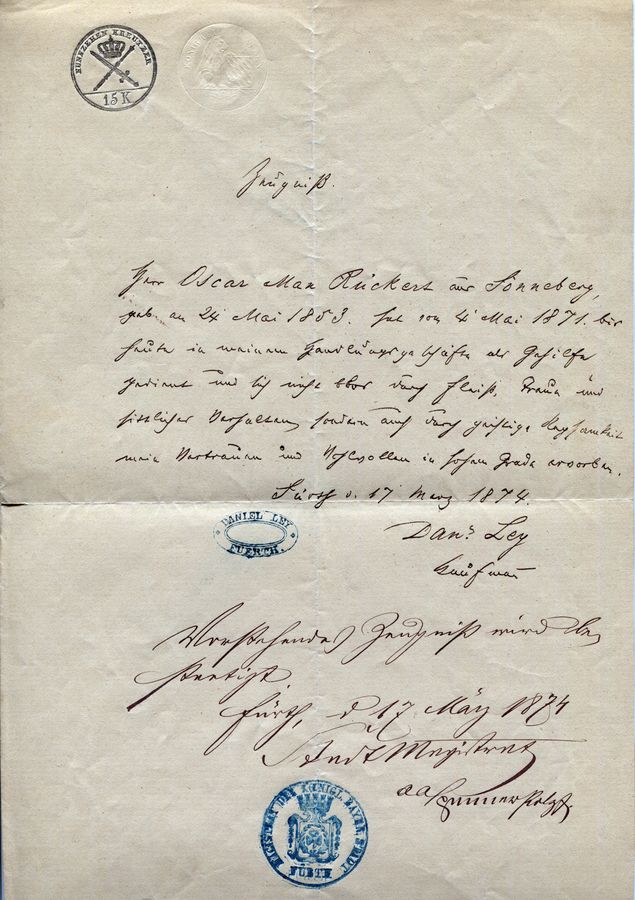 FÜNFZEHEN KREUTZER
15 K
Zeugniß.
Herr Oscar Max Rückert aus Sonneberg,
geb. am 24 Mai 1853. hat vom 4 Mai 1871. bis
heute in meinem Handlungsgeschäfte als Gehilfe
gedient und sich nicht blos durch Fleiß, Treue und
sittliches Verhalten, sondern auch durch geistige Regsamkeit
mein Vertrauen und Wohlwollen in hohem Grade erworben.
Fürth d. 17 März 1874.
DANIEL LEY
FUERTH.
Danl. Ley
Kaufmann
Vorstehendes Zeugniß wird be
staetigt.
Fürth, d 17 März 1874
Stadt Magistrat
KÖNIGL. BAYER. STADT
FÜRTH